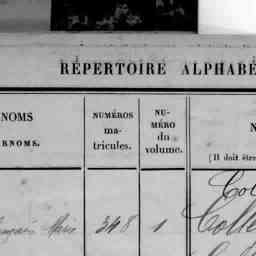 RÉPERTOIRE ALPHABÉ
NOMS
RNOMS.
NUMÉROS
ma-
tricules.
NU-
MÉRO
du
volume.
N
(Il doit être
Col
348 1 Colle